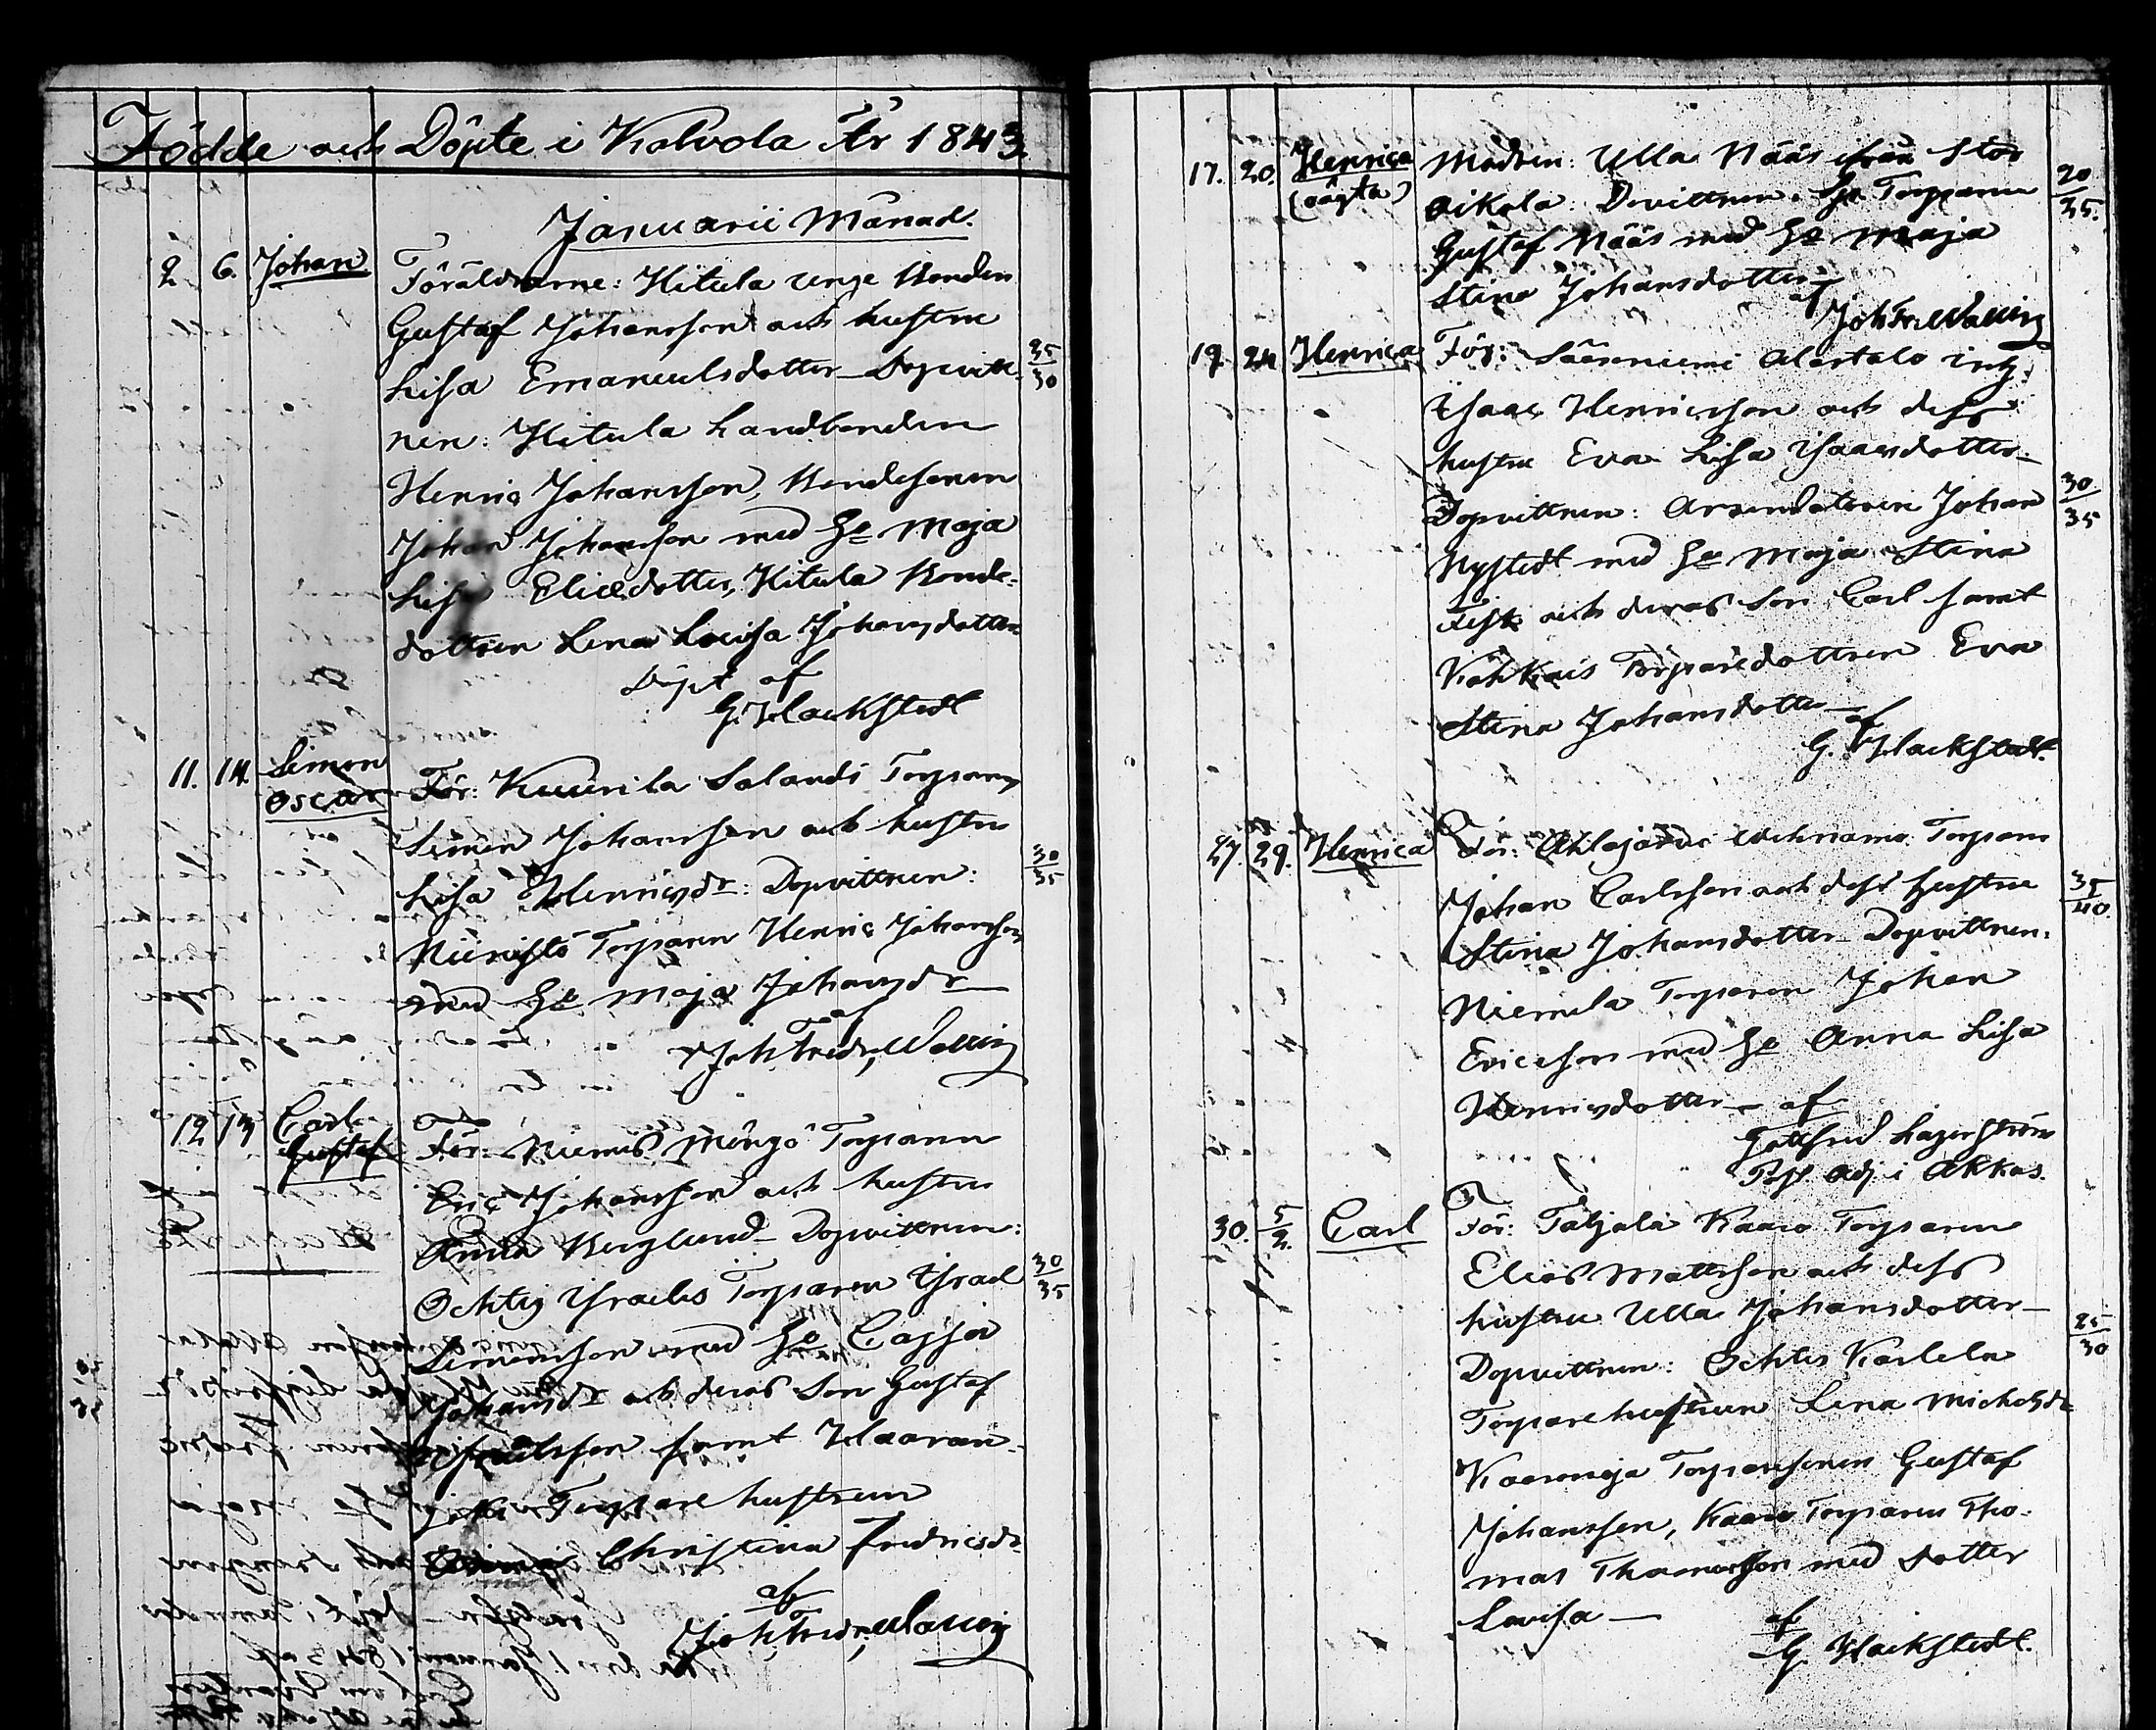 Födde och Döpte i Kalvola År 1843.
Januarii Månad.
2. 6. Johan Föräldrarne: Hitula unge Bonden
Gustaf Johansson och hustru
Lisa Emanuelsdotter – Dopvitt- 35/30
nen: Hitula Landbonden
Henric Johansson, Bondesonen
Johan Johansson med H:o Maja
Lisa Eliædotter, Hitula Bonde-
dottren Lena Lovisa Johansdotter
Döpt af
G. Hackstedt
11. 14. Simon Oscar För: Kuurila Salandi Torparn
Simon Johansson och hustru
Lisa Henricsdr: Dopvittnen: 30/35
Niinistö Torparn Henric Johansson
med H:o Maja Johansdr
af
Joh Fredr Wallin
12 13 Carl Gustaf För: Niemis Torparen
Eric Johansson och hustru
Anna Berglund – Dopvittnen:
Ochtis Israelis Torparen Israel 30/35
Simonsson med H:o Cajsa
Johansdr och deras Son Gustaf
Israelsson samt Haaran-
Torpare hustrun
Christina Fredricsdr
af
Joh: Fredr: Wallin
17. 20. Henrica (oägta) Modren: Ulla Nääs ifrån Stor
Oikola. Dopvittnen. Torparen 20/35.
Gustaf Nääs med H:o Maja
Stina Johansdotter –
af
Joh Fr. Wallin
19 24 Henrica För: Sääksniemi Alastalo inh:
Isaac Henricsson och dess
hustru Eva Lisa Isaacsdotter –
Dopvittnen: Arrendatoren Johan 30/35
Nystedt med H:o Maja Stina
Fisk och deras Son Carl samt
Torparedottren Eva
Stina Johansdotter –
af
G. Hackstedt.
27. 29. Henrica För: Ahlajärvi Torparn
Johan Carlsson och dess hustru 35/40
Stina Johansdotter – Dopvittnen.
Niemila Torparen Johan
Ericsson med H:o Anna Lisa
Henricsdotter – af
Gottfrid Lagerström
Past. Adj. i Akkas.
30. 5/2. Carl För: Taljala Kaaro Torparen
Elias Mattsson och dess
hustru Ulla Johansdotter –
Dopvittnen: Ochtis Karlela 25/30
Torparehustrun Lena Michelsdr
Torparesonen Gustaf
Johansson, Kaaro Torparen Tho-
mas Thomasson med dotter
Lovisa –
af
G. Hackstedt.